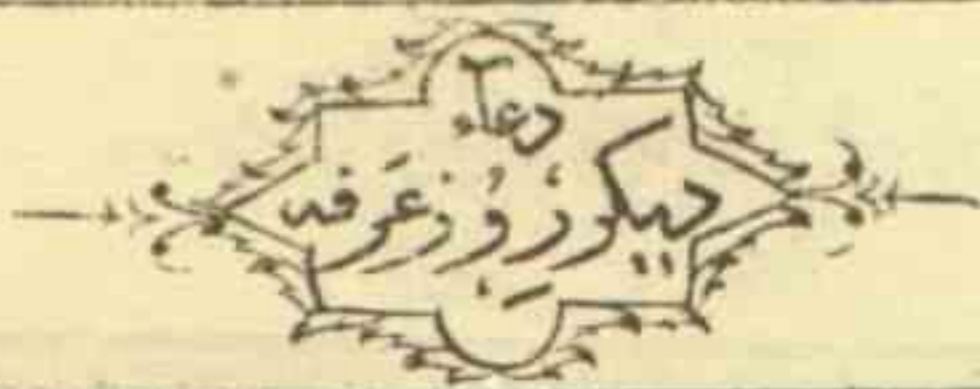 دعآء
دیکر روز عرفه